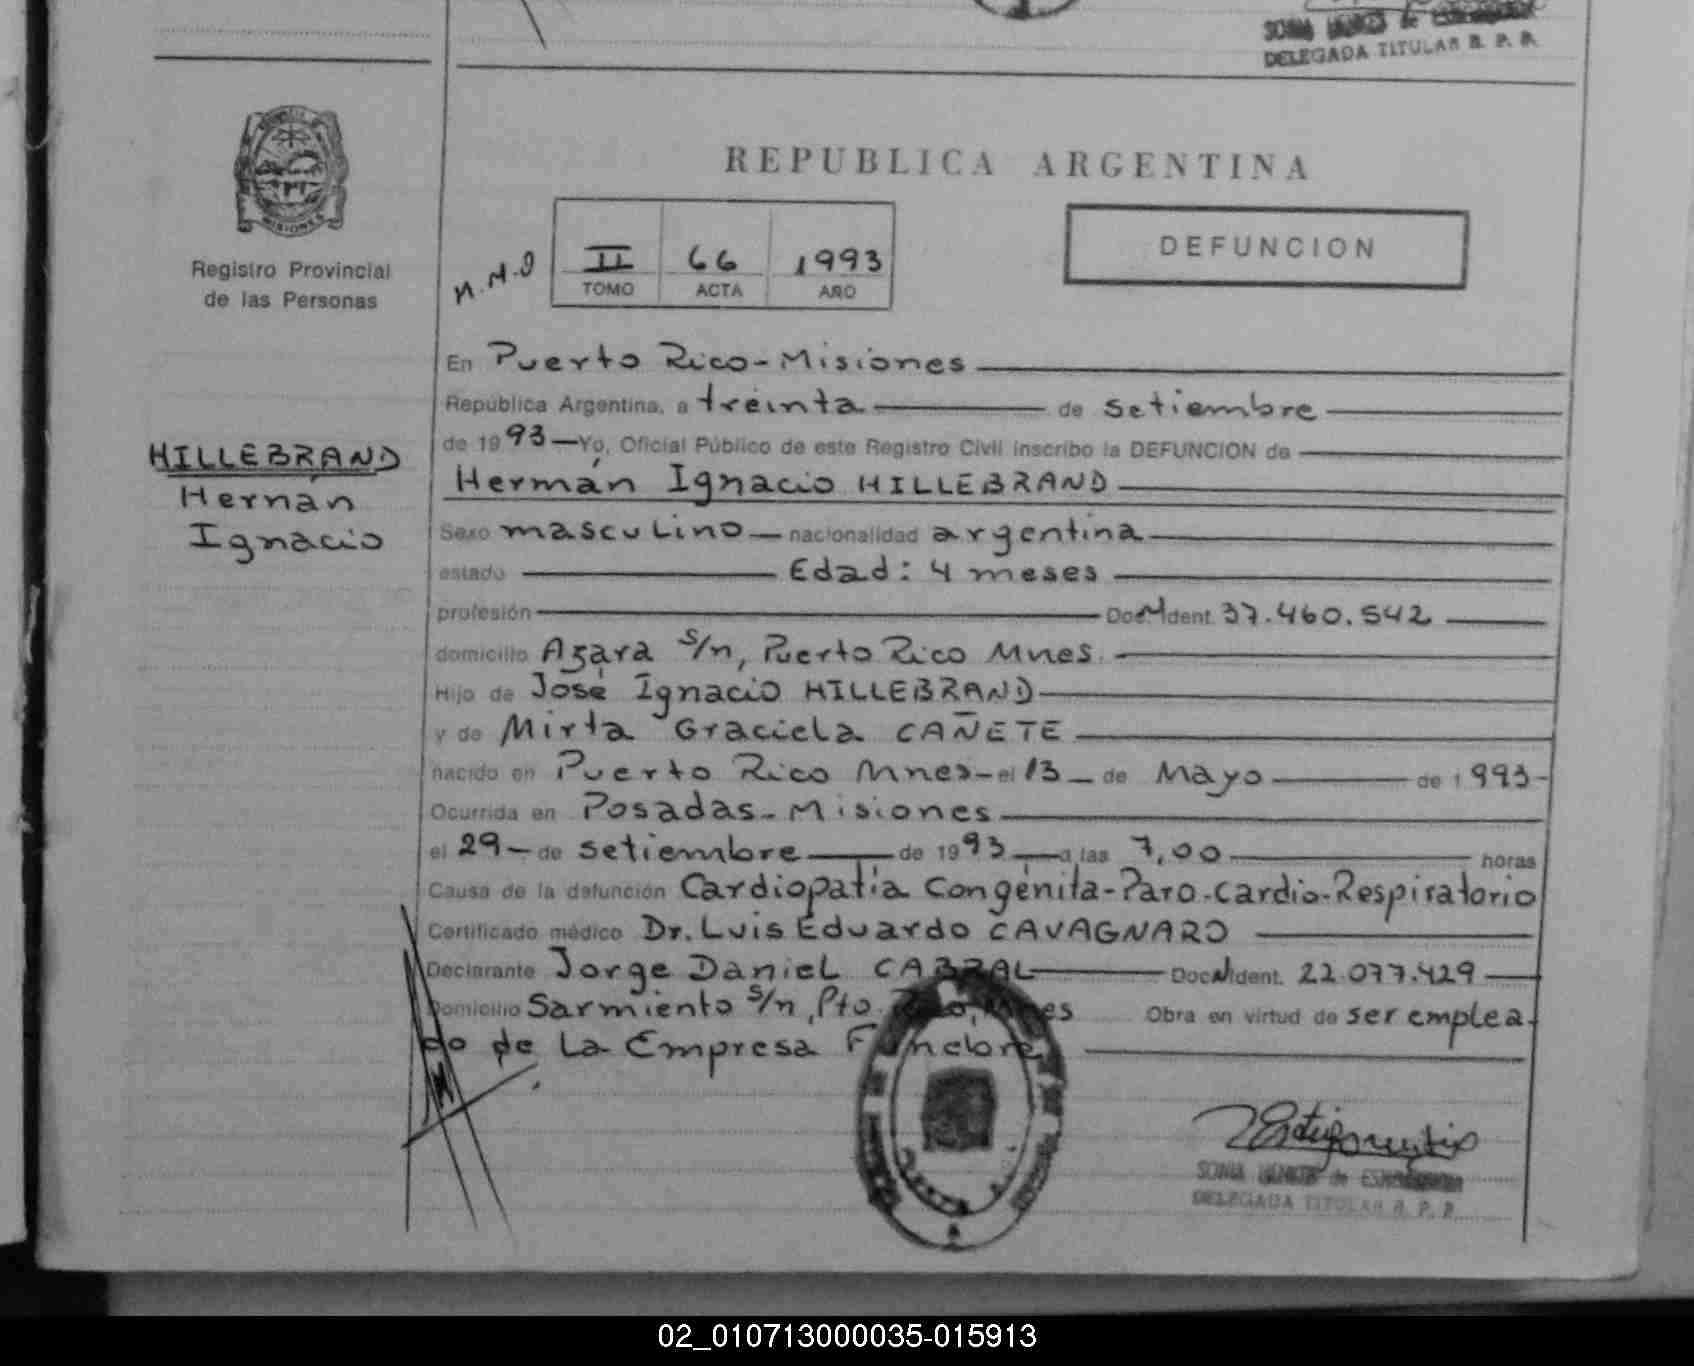 DELEGADA TITULAR R. P. P.
MISIONES
Registro Provincial
de las Personas
HILLEBRAND
Hernán
Ignacio
REPUBLICA ARGENTINA
II 66 1993
TOMO ACTA AÑO
DEFUNCION
En Puerto Rico-Misiones
República Argentina, a treinta de setiembre
de 1993 Yo, Oficial Público de este Registro Civil inscribo la DEFUNCION de
Hermán Ignacio HILLEBRAND
Sexo masculino nacionalidad argentina
estado Edad: 4 meses
profesión Doc. Ident. 37.460.542
domicilio Azara s/n, Puerto Rico Mnes.
Hijo de José Ignacio HILLEBRAND
y de Mirta Graciela CAÑETE
nacido en Puerto Rico Mnes- el 13 de Mayo de 1993-
Ocurrida en Posadas-Misiones
el 29 de setiembre de 1993 a las 7,00 horas
Causa de la defunción Cardiopatía Congénita-Paro-Cardio-Respiratorio
Certificado médico Dr. Luis Eduardo CAVAGNARO
Declarante Jorge Daniel CABRAL Doc. Ident. 22.077.429
Domicilio Sarmiento s/n, Pto. Rico, Mnes Obra en virtud de ser emplea-
do de La Empresa Fúnebre
SONIA de
DELEGADA TITULAR R. P. P.
02_010713000035-015913